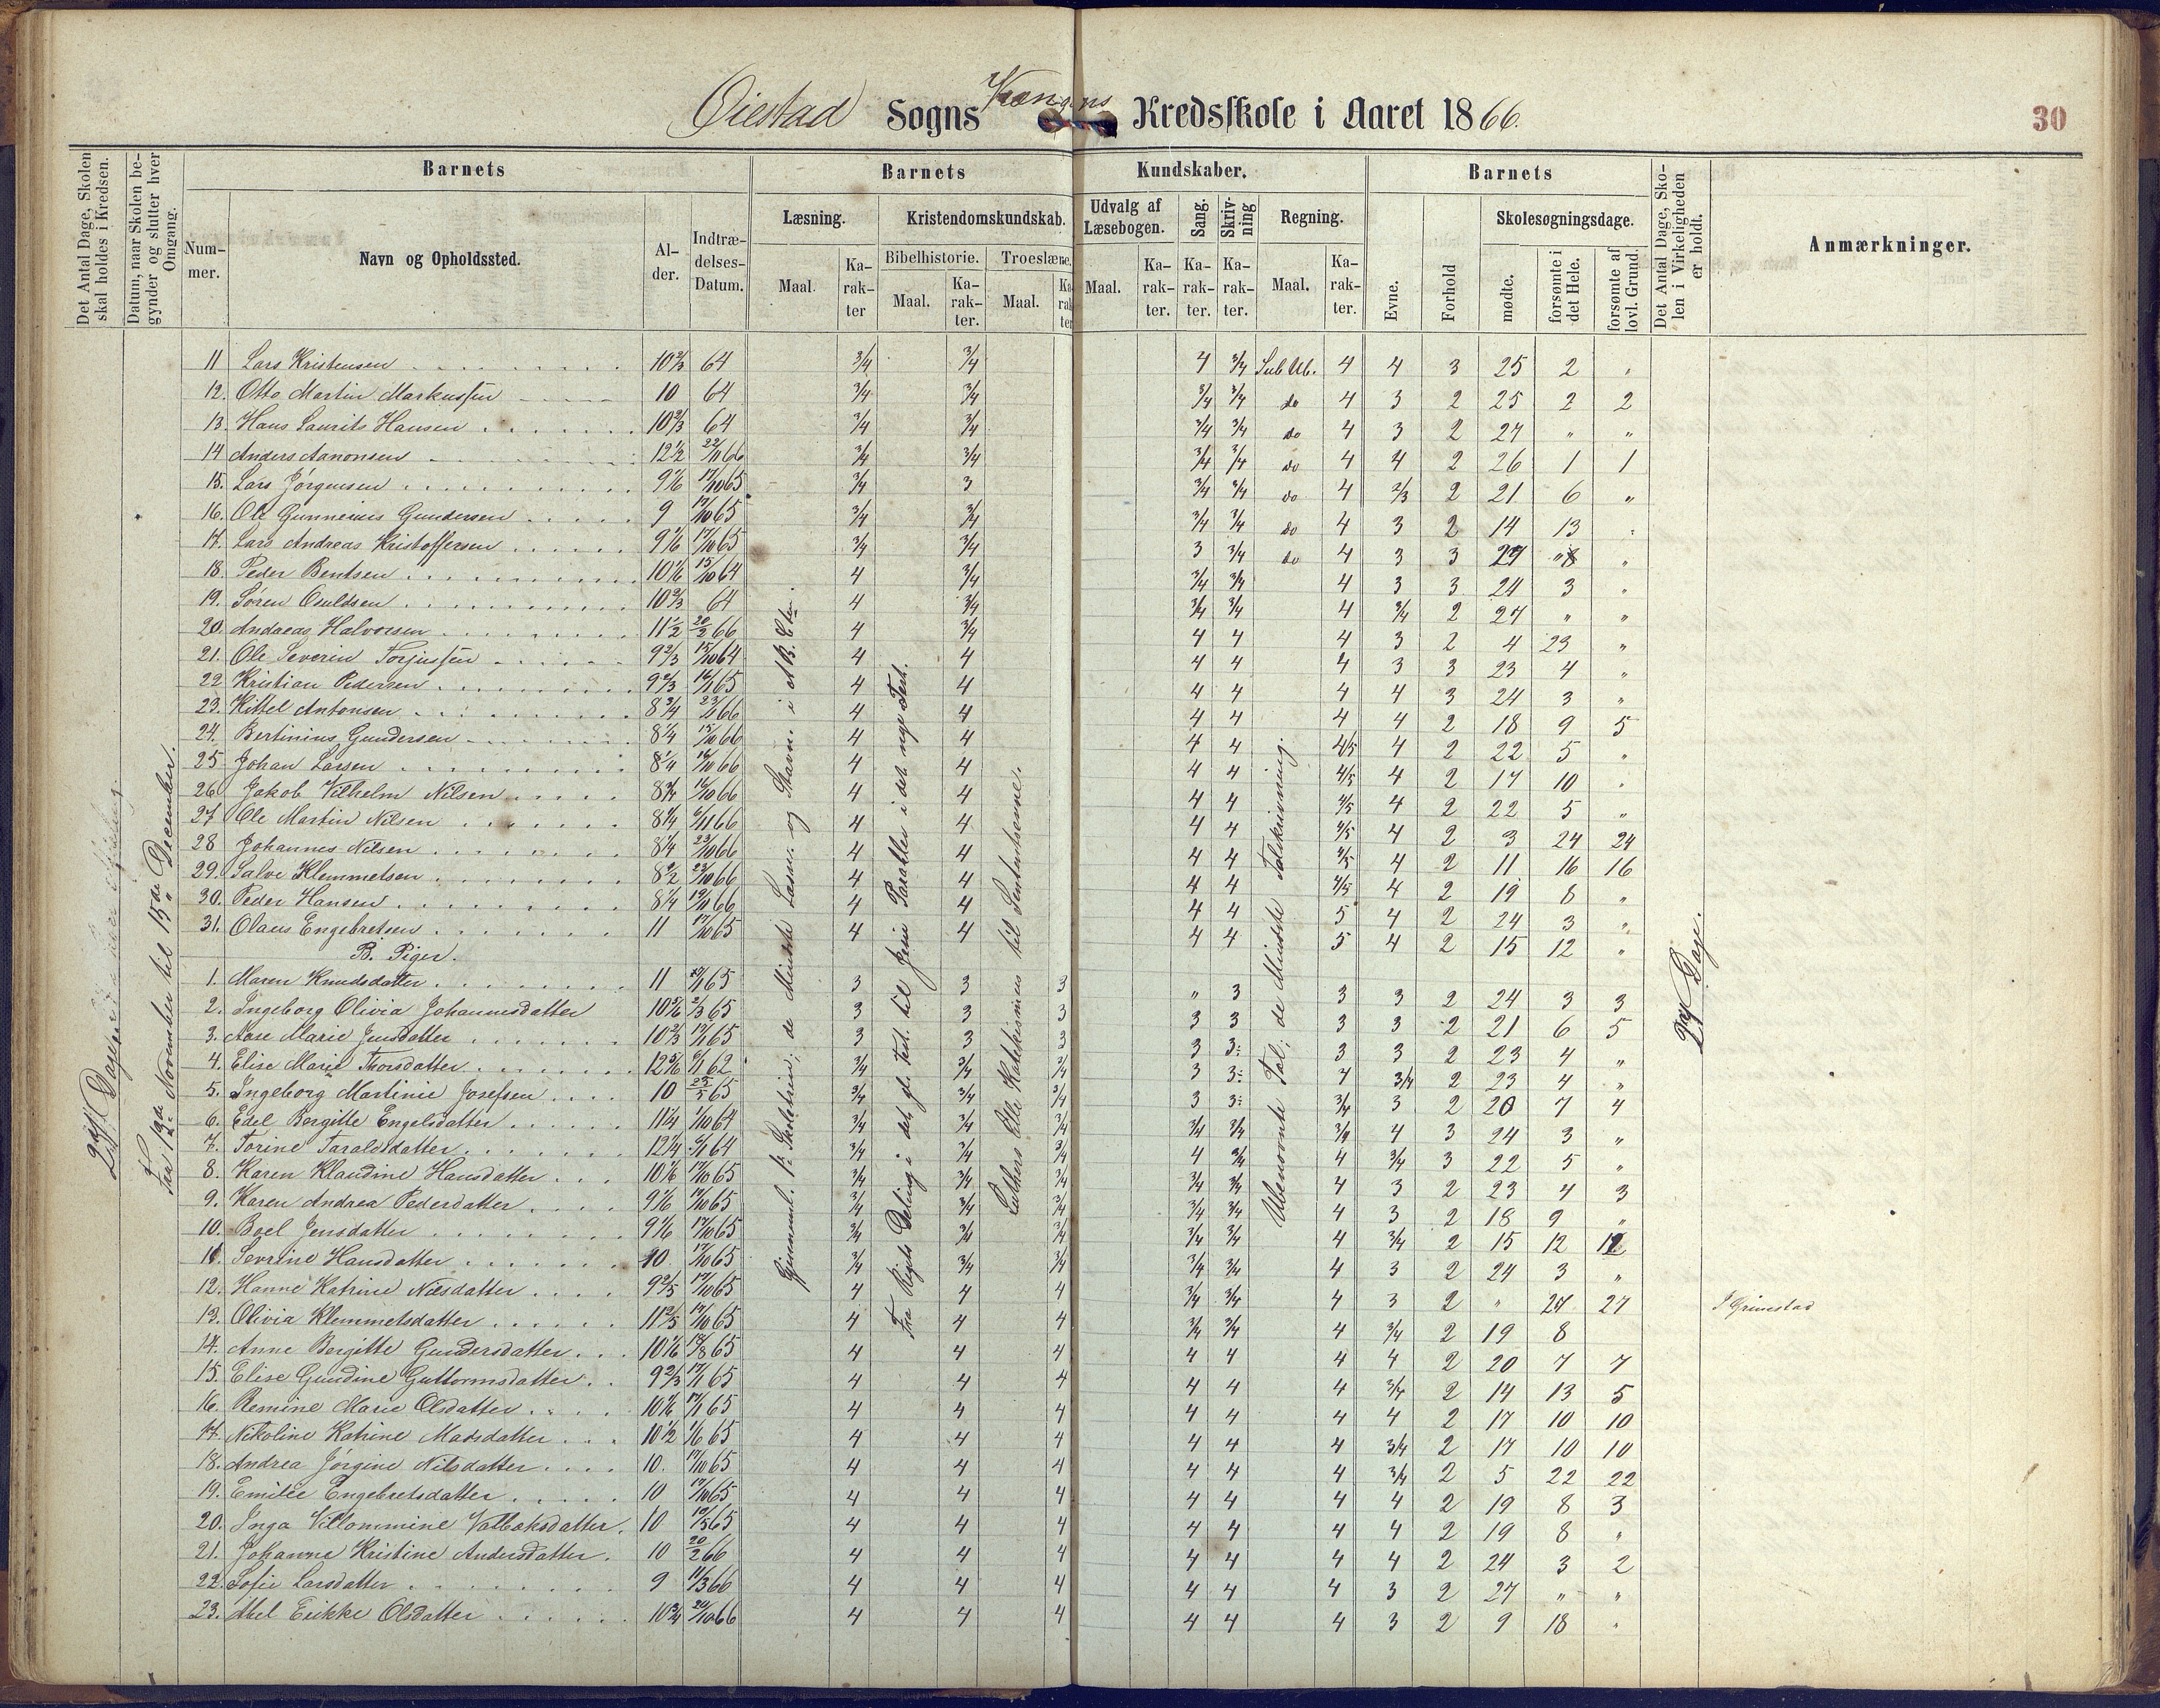 Øiestad Sogns Kredsskole i Aaret 1866.
30
Det Antal Dage, Skolen skal holdes i Kredsen.
Datum, naar Skolen begynder og slutter hver Omgang.
Barnets
Nummer.
Navn og Opholdssted.
Alder.
Indtrædelses-Datum.
Barnets Kundskaber.
Læsning.
Maal.
Karakter
Kristendomskundskab.
Bibelhistorie.
Maal.
Karakter.
Troeslære.
Maal.
Karakter
Udvalg af Læsebogen.
Maal.
Karakter.
Sang.
Karakter.
Skrivning
Karakter.
Regning.
Maal.
Karakter.
Barnets
Evne.
Forhold
Skolesøgningsdage.
mødte.
forsømte i det Hele.
forsømte af lovl. Grund.
Det Antal Dage, Skolen i Virkeligheden er holdt.
Anmærkninger.
11 Lars Kristensen 10 2/3 64 3/4 3/4 4 3/4 Sub Ub. 4 4 3 25 2 "
12. Otto Martin Markussen 10 64 3/4 3/4 3/4 3/4 do 4 3 2 25 2 2
13. Hans Laurits Hansen 10 2/3 64 3/4 3/4 3/4 3/4 do 4 3 2 27 " "
14 Anders Aanonsen 12 1/2 22/11 66 3/4 3/4 3/4 3/4 do 4 4 2 26 1 1
15. Lars Jörgensen 9 1/6 17/10 65 3/4 3 3/4 3/4 do 4 2/3 2 21 6 "
16. Ole Gunnerius Gundersen 9 17/10 65 3/4 3/4 3/4 3/4 do 4 3 2 14 13 "
17. Lars Andreas Kristoffersen 9 1/6 17/10 65 3/4 3/4 3 3/4 do 4 3 3 27 " "
18. Peder Bentsen 10 1/6 15/10 64 4 3/4 3/4 3/4 4 3 3 24 3 "
19. Sören Osuldsen 10 2/3 64 4 3/4 3/4 3/4 4 3/4 2 27 " "
20. Andreas Halvorsen 11 1/2 20/2 66 4 3/4 4 4 4 3 2 4 23 "
21. Ole Severin Torjussen 9 2/3 15/10 64 4 4 4 4 4 3 3 23 4 "
22 Kristian Pedersen 9 2/3 16/1 65 4 4 4 4 4 4 3 24 3 "
23. Kittel Antonsen 8 3/4 23/1 66 4 4 4 4 4 4 2 18 9 5
24. Bertinius Gundersen 8 1/4 15/10 66 4 4 4 4 4/5 4 2 22 5 "
25 Johan Larsen 8 1/4 16/10 66 4 4 4 4 4/5 4 2 17 10 "
26 Jakob Vilhelm Nilsen 8 3/4 16/10 66 4 4 4 4 4/5 4 2 22 5 "
27 Ole Martin Nilsen 8 1/4 6/11 66 4 4 4 4 4/5 4 2 3 24 24
28 Johannes Nilsen 8 1/4 23/10 66 4 4 4 4 4/5 4 2 11 16 16
29. Salve Klemmetsen 8 1/2 23/10 66 4 4 4 4 4/5 4 2 19 8 "
30. Peder Hansen 8 1/4 19/11 66 4 4 4 4 5 4 2 24 3 "
31. Olaus Engebretsen 11 17/10 65 4 4 4 4 5 4 2 15 12 "
B. Piger.
1. Maren Knudsdatter 11 65 3 3 3 " 3 3 3 2 24 3 3
2. Ingeborg Olivia Johannesdatter 10 5/6 2/3 65 3 3 3 3 3 3 3 2 21 6 5
3. Aase Marie Jensdatter 10 2/3 65 3 3 3 3 3 3 3 2 23 4 "
4. Elise Marie Thorsdatter 12 5/6 62 3/4 3/4 3/4 3 3 4 3/4 2 23 4 "
5. Ingeborg Martinie Josefsen 10 65 3/4 3/4 3/4 3 3 3/4 3 2 20 7 4
6. Edel Bergitte Engelsdatter 11 1/4 1/10 64 3/4 3/4 3/4 3/4 3/4 3/4 4 3 24 3 "
7. Torine Taraldsdatter 12 1/4 64 3/4 3/4 3/4 4 3/4 4 3/4 3 22 5 "
8. Karen Klaudine Hansdatter 10 1/6 17/10 65 3/4 3/4 3/4 3/4 3/4 4 3 2 23 4 3
9. Karen Andrea Pedersdatter 9 1/6 17/10 65 3/4 3/4 3/4 3/4 3/4 4 3 2 18 9 "
10. Boel Jensdatter 9 1/6 17/10 65 3/4 3/4 3/4 3/4 3/4 4 3/4 2 15 12 12
11. Severine Hansdatter 10 17/10 65 3/4 3/4 3/4 3/4 3/4 4 3 2 24 3 "
12. Hanne Katrine Nilsdatter 9 2/5 17/10 65 4 4 4 3/4 3/4 4 3 2 " 27 27 I Grimstad
13. Olivia Klemmetsdatter 11 2/5 17/10 65 4 4 4 3/4 3/4 4 3/4 2 19 8
14. Anne Bergitte Gundersdatter 10 1/6 18/8 65 4 4 4 4 4 4 4 2 20 7 7
15. Elise Gundine Guttormsdatter 9 2/3 17/1 65 4 4 4 4 4 4 3/4 2 14 13 5
16. Remine Marie Olsdatter 10 1/6 17/1 65 4 4 4 4 4 4 4 2 17 10 10
17. Nikoline Katrine Madsdatter 10 1/2 1/6 65 4 4 4 4 4 4 3/4 2 17 10 10
18. Andrea Jörgine Nilsdatter 10. 17/10 65 4 4 4 4 4 4 3/4 2 5 22 22
19. Emilie Engebretsdatter 10 17/10 65 4 4 4 4 4 4 4 2 19 8 3
20. Inga Villommine Valbaksdatter 10 65 4 4 4 4 4 4 4 2 19 8 "
21. Johanne Kristine Andersdatter. 10 20/2 66 4 4 4 4 4 4 4 2 24 3 2
22. Sofie Larsdatter 9 11/3 66 4 4 4 4 4 4 3 2 27 " "
23. Abel Erikke Olsdatter 10 3/4 20/10 66 4 4 4 4 4 4 3 2 9 18 "
Fra 12te November til 15de December.
Gjenneml. P. Skolebrien; de Mindste Læsn. og Stavn. i A B C'en.
Fra Rigets Deling i det gl. Test. til Jesu Parabler i det nye Test.
Luthers Lille Katekismus til Sententserne.
Ubenævnte Tal; de Mindste Talskrivning.
27 Dage.